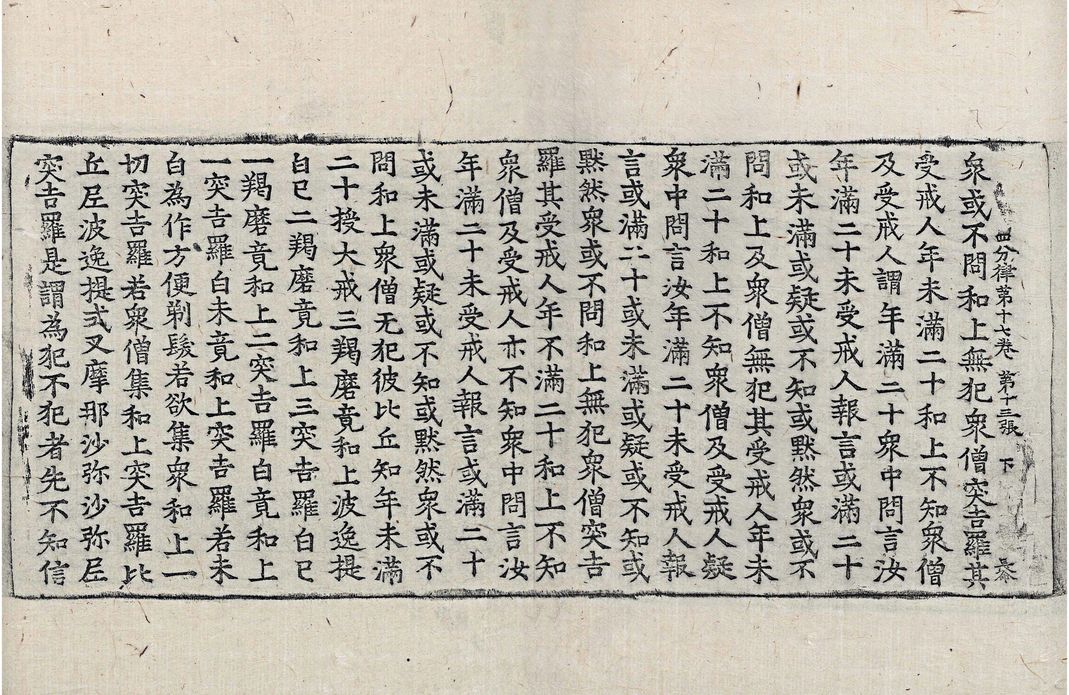 四分律第十七卷 第十三張 下
衆或不問和上無犯衆僧突吉羅其
受戒人年未滿二十和上不知衆僧
及受戒人謂年滿二十衆中問言汝
年滿二十未受戒人報言或滿二十
或未滿或疑或不知或黙然衆或不
問和上及衆僧無犯其受戒人年未
滿二十和上不知衆僧及受戒人疑
衆中問言汝年滿二十未受戒人報
言或滿二十或未滿或疑或不知或
黙然衆或不問和上無犯衆僧突吉
羅其受戒人年不滿二十和上不知
衆僧及受戒人亦不知衆中問言汝
年滿二十未受戒人報言或滿二十
或未滿或疑或不知或黙然衆或不
問和上衆僧无犯彼比丘知年未滿
二十授大戒三羯磨竟和上波逸提
白已二羯磨竟和上三突吉羅白已
一羯磨竟和上二突吉羅白竟和上
一突吉羅白未竟和上突吉羅若未
白為作方便剃髮若欲集衆和上一
切突吉羅若衆僧集和上突吉羅比
丘尼波逸提式叉摩那沙弥沙弥尼
突吉羅是謂為犯不犯者先不知信